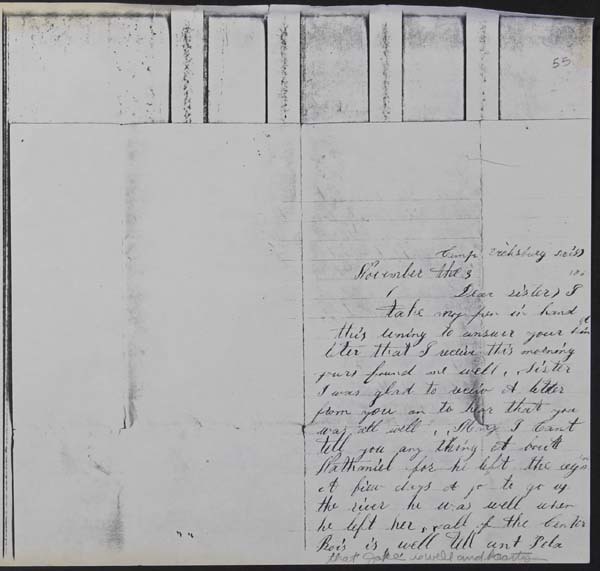 55
Camp Vicksburg
November the 3
Dear sister) I
take my pen in hand
this evning to answer your kin
leter that I receive this morning
yours found me well, Sister
I was glad to receiv A letter
from you an to hear that you
was all well, I cant
tell you any thing A bout
Nathaniel for he left the
A fiew days A go to go up
the river he was well when
he left her, all of the Center
Bois is well tell ant
that Jake is well and hearty